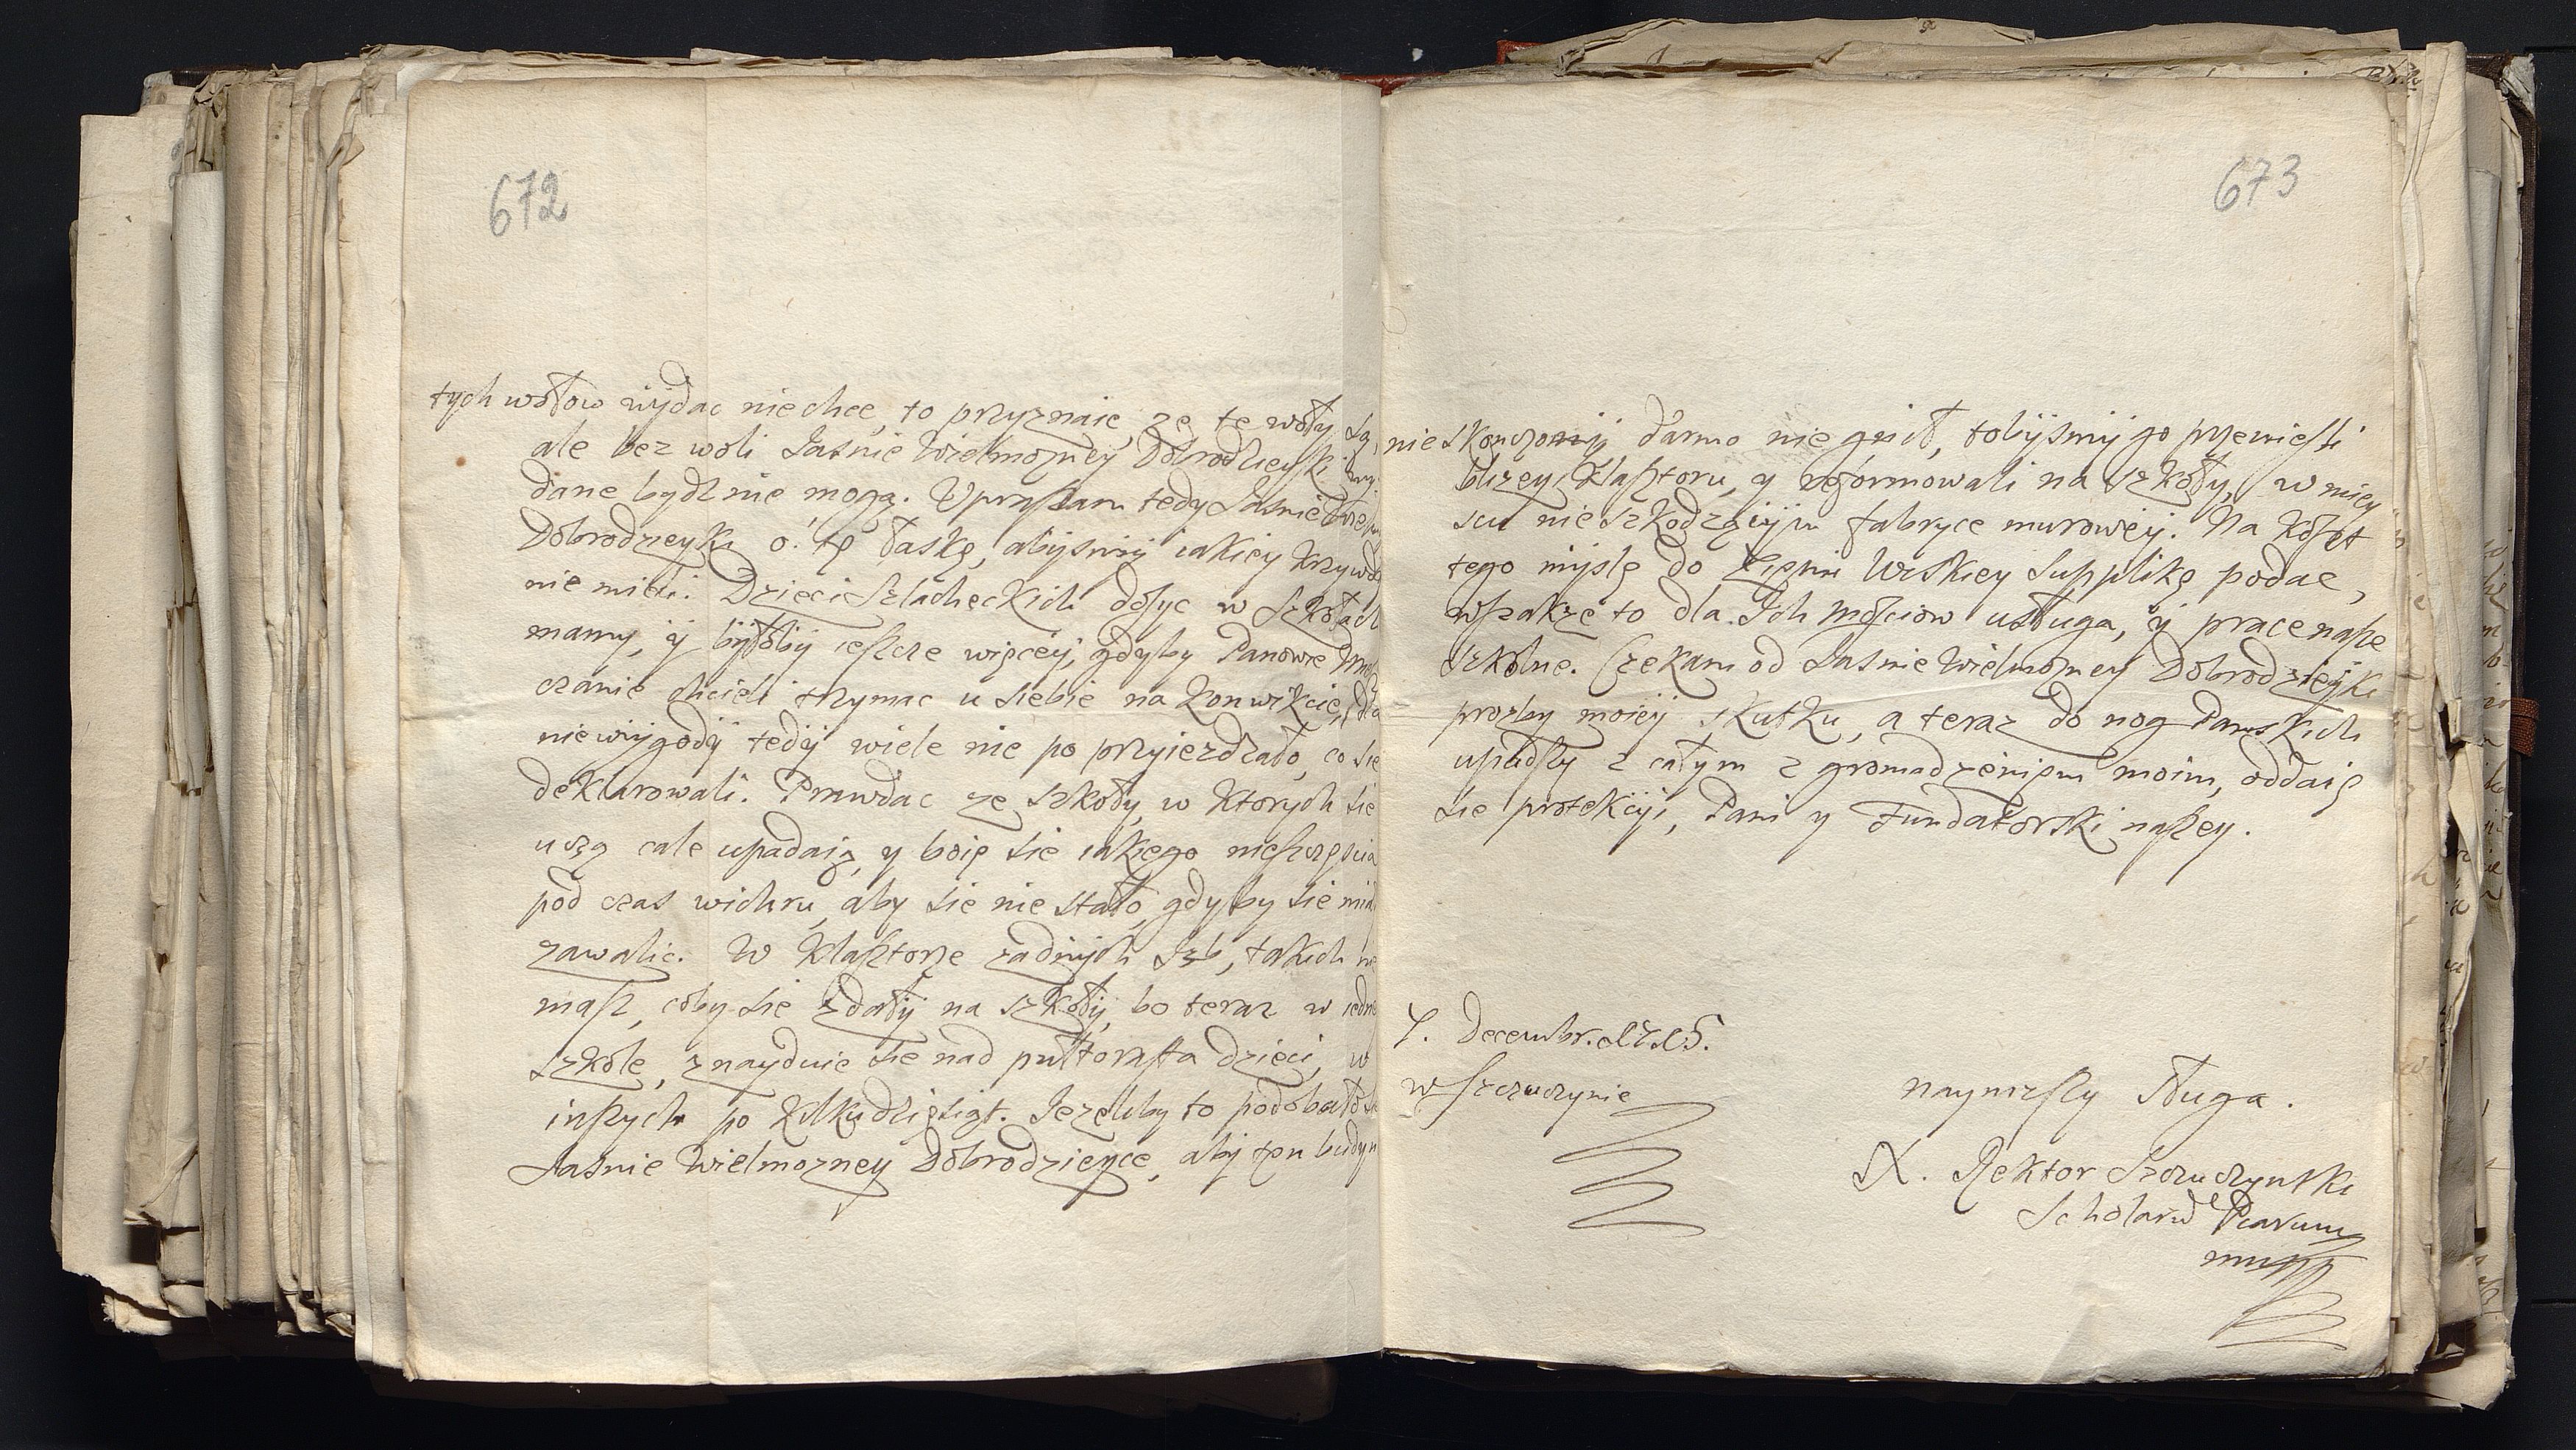 672
tych wołow wydac niechce, to przyznaie, ze te woły są,
ale bez woli Jasnie Wielmozney Dobrodzieyki wy-
dane bydz nie mogą. Upraszam tedy Jasnie
Dobrodzieyki o tę łaskę, abysmy iakiey krzywdy
nie mieli. Dzieci Szlacheckich dosyc w Szkołach
mamy, y byłoby ieszcze więcey, gdyby Panowie
czanie chcieli trzymac u siebie na konwikcie, dla
niewygody tedy wiele nie po przyiezdzało, co sie
deklarowali. Prawdac ze szkoły, w ktorych sie
uczą cale upadaią, y boię sie iakiego nieszczęscia
pod czas wichru, aby sie nie stało, gdyby sie
zawalic. W Klasztorze zadnych Izb, takich nie
masz, coby sie zdały na szkoły, bo teraz w iedne
szkole, znayduie sie nad pułtorasta dzieci, w
inszych po kilkudziesiąt. Jezeliby to podobało sie
Jasnie Wielmozney Dobrodzieyce, aby ten budyn
673
nieskonczony, darmo nie gnił, tobysmy go przewiezli
blizey Klasztoru, y reformowali na szkoły, w miey
scu nieszkodzącym fabryce murowey. Na koszt
tego myslę do Ziemi Wiskiey Supplikę podac,
wszakze to dla Ich Mosciow usługa, y prace nasze
szkolne. Czekam od Jasnie Wielmozney Dobrodzieyki
prozby moiey skutku, a teraz do nog Panskich
upadszy z całym zgromadzeniem moim, oddaię
sie protekcyi, Pani y Fundatorski naszey.
decembr.
w Szczuczynie
naynizszy Sługa.
X. Rektor Szczuczynski
Scholarũ Piarum
mpp